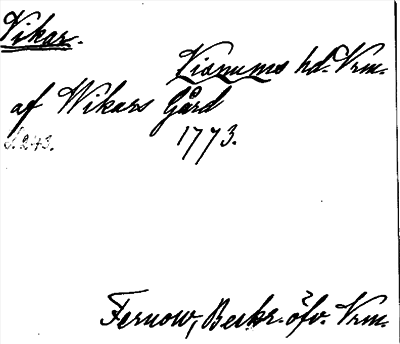 Vikar.
Visnums hd. Vrm.
af Wikars Gård
S. 243. 1773.
Fernow, Beskr. öfv. Vrm.